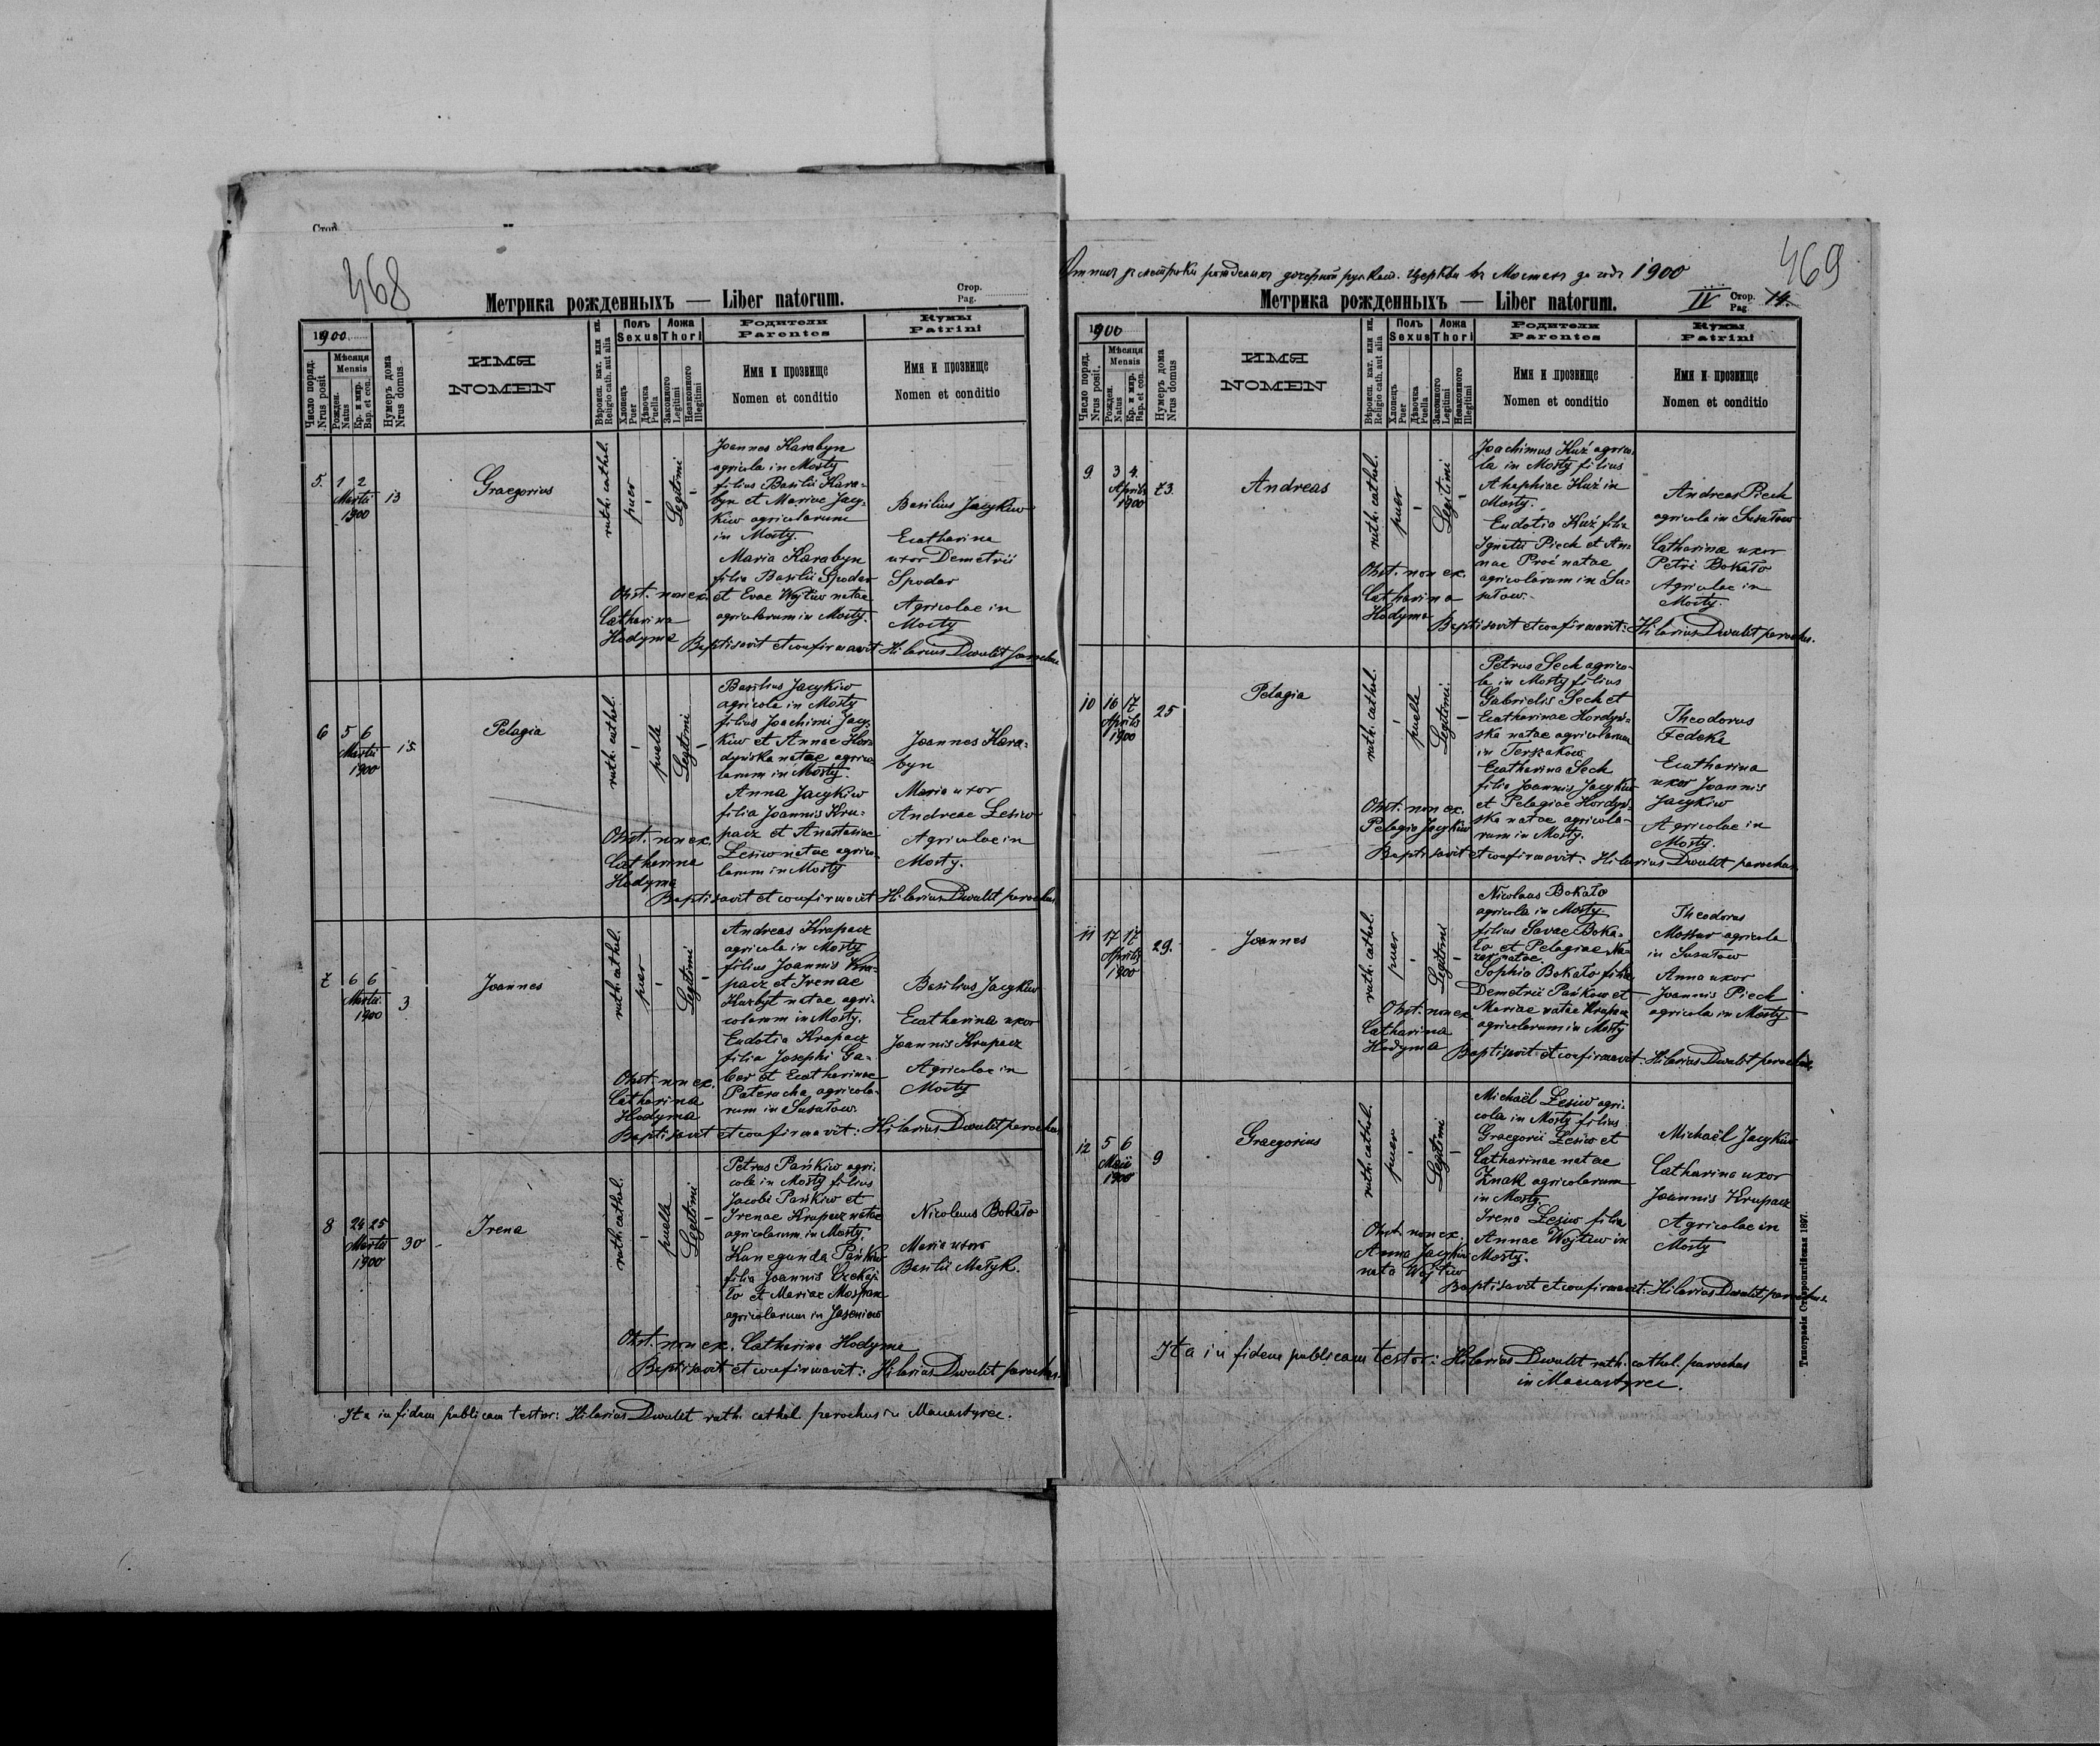 Стор.
468
Метрика рожденныхъ — Liber natorum.
Стор.
Pag.
1900
Число поряд.
Nrus posit
Мѣсяця
Mensis
Рожден.
Natus
Кр. и мир.
Bap. et con.
Нумеръ дома
Nrus domus
ИМЯ
NOMEN
Вѣроисп. кат. или ин.
Religio cath. aut alia
Полъ
Sexus
Хлопець
Puer
Дѣвочка
Puella
Ложа
Thori
Законного
Legitimi
Незаконного
Illegitimi
Родители
Parentes
Имя и прозвище
Nomen et conditio
Кумы
Patrini
Имя и прозвище
Nomen et conditio
5. 1 2
Martii
1900
13
Graegorius
ruth. cathol.
puer
-
Legitimi
-
Joannes Karabyn
agricola in Mosty
filius Basilii Kara-
byn et Mariae Jacy-
kiw agricolarum
in Mosty.
Maria Karabyn
filia Basilii Spodar
et Evae Wojtiw natae
agricolarum in Mosty.
Basilius Jacykiw
Ecatharina
uxor Demetrii
Spodar
Agricolae in
Mosty
Obst. non ex.
Catharina
Hodyma
Baptisavit et confirmavit Hilarius Dwulit parochus
6 5 6
Martii
1900
15
Pelagia
ruth. cathol.
-
puella
Legitimi
-
Basilius Jacykiw
agricola in Mosty
filius Joachimi Jacy-
kiw et Annae Hor-
dyńska natae agrico-
larum in Mosty.
Anna Jacykiw
filia Joannis Kru-
pacz et Anastasiae
Lesiw natae agrico-
larum in Mosty
Joannes Kara-
byn
Maria uxor
Andreae Lesiw
Agricolae in
Mosty.
Obst. non ex.
Catharina
Hodyma
Baptisavit et confirmavit Hilarius Dwulit parochus
7 6 6
Martii
1900
3
Joannes
ruth. cathol.
puer
-
Legitimi
-
Andreas Krupacz
agricola in Mosty
filius Joannis Kru-
pacz et Irenae
Harbyt natae agri-
colarum in Mosty.
Eudotia Krupacz
filia Josephi Ga-
ber et Ecatharinae
Pateracha agricola-
rum in Susułow.
Basilius Jacykiw
Ecatharina uxor
Joannis Krupacz
Agricolae in
Mosty
Obst. non ex.
Catharina
Hodyma
Baptisavit et confirmavit: Hilarius Dwulit parochus
8 24 25
Martii
1900
30
Irena
ruth. cathol.
-
puella
Legitimi
-
Petrus Pańkiw agri-
cola in Mosty filius
Jacobi Pańkiw et
Irenae Krupacz natae
agricolarum in Mosty.
Kunegunda Pańkiw
filia Joannis Czekaj-
ło et Mariae Mospan
agricolarum in Jaseniow
Nicolaus Bokało
Maria uxor
Basilii Matyk.
Obst. non ex. Catharina Hodyma
Baptisavit et confirmavit: Hilarius Dwulit parochus.
Ita in fidem publicam testor: Hilarius Dwulit ruth. cathol. parochus in Manastyrec.
469
церкви въ Мостахъ за годъ 1900
Метрика рожденныхъ — Liber natorum.
IV
Стор.
Pag.
14.
1900
Число поряд.
Nrus posit.
Мѣсяця
Mensis
Рожден.
Natus
Кр. и мир.
Bap. et con.
Нумеръ дома
Nrus domus
ИМЯ
NOMEN
Вѣроисп. кат. или ин.
Religio cath. aut alia
Полъ
Sexus
Хлопець
Puer
Дѣвочка
Puella
Ложа
Thori
Законного
Legitimi
Незаконного
Illegitimi
Родители
Parentes
Имя и прозвище
Nomen et conditio
Кумы
Patrini
Имя и прозвище
Nomen et conditio
9 3 4
Aprilis
1900
73.
Andreas
ruth. cathol.
puer
-
Legitimi
-
Joachimus Kuź agrico-
la in Mosty filius
Ahaphiae Kuź in
Mosty.
Eudotia Kuź filia
Ignatii Piech et An-
nae Proć natae
agricolarum in Su-
sułow.
Andreas Piech
agricola in Susułow
Catharina uxor
Petri Bokało
Agricolae in
Mosty.
Obst. non ex.
Catharina
Hodyma
Baptisavit et confirmavit: Hilarius Dwulit parochus.
10 16 17
Aprilis
1900
25
Pelagia
ruth. cathol.
-
puella
Legitimi.
-
Petrus Sech agrico-
la in Mosty filius
Gabrielis Sech et
Ecatharinae Hordyń-
ska natae agricolarum
in Terszakow
Ecatharina Sech
filia Joannis Jacykiw
et Pelagiae Hordyń-
ska natae agricola-
rum in Mosty.
Theodorus
Fedeka
Ecatharina
uxor Joannis
Jacykiw
Agricolae in
Mosty.
Obst. non ex.
Pelagia Jacykiw
Baptisavit et confirmavit: Hilarius Dwulit parochus
11 17 17
Aprilis
1900
29.
Joannes
ruth. cathol.
puer
-
Legitimi
-
Nicolaus Bokało
agricola in Mosty
filius Savae Boka-
ło et Pelagiae
natae.
Sophia Bokało filia
Demetrii Pańkow et
Mariae natae Krupacz
agricolarum in Mosty
Theodorus
Mossur agricola
in Susułow
Anna uxor
Joannis Piech
agricola in Mosty
Obst. non ex.
Catharina
Hodyma
Baptisavit et confirmavit: Hilarius Dwulit parochus.
12 5 6
Maii
1900
9
Graegorius
ruth. cathol.
puer
-
Legitimi
-
Michaël Lesiw agri-
cola in Mosty filius
Graegorii Lesiw et
Catharinae natae
Znak agricolarum
in Mosty.
Irena Lesiw filia
Annae Wojtiw in
Mosty.
Michaël Jacykiw
Catharina uxor
Joannis Krupacz
Agricolae in
Mosty
Obst. non ex.
Anna Jacykiw
nata Wojtiw
Baptisavit et confirmavit: Hilarius Dwulit parochus.
Ita in fidem publicam testor: Hilarius Dwulit ruth. cathol. parochus
in Manastyrec.
Типографія Ставропигійская 1897.